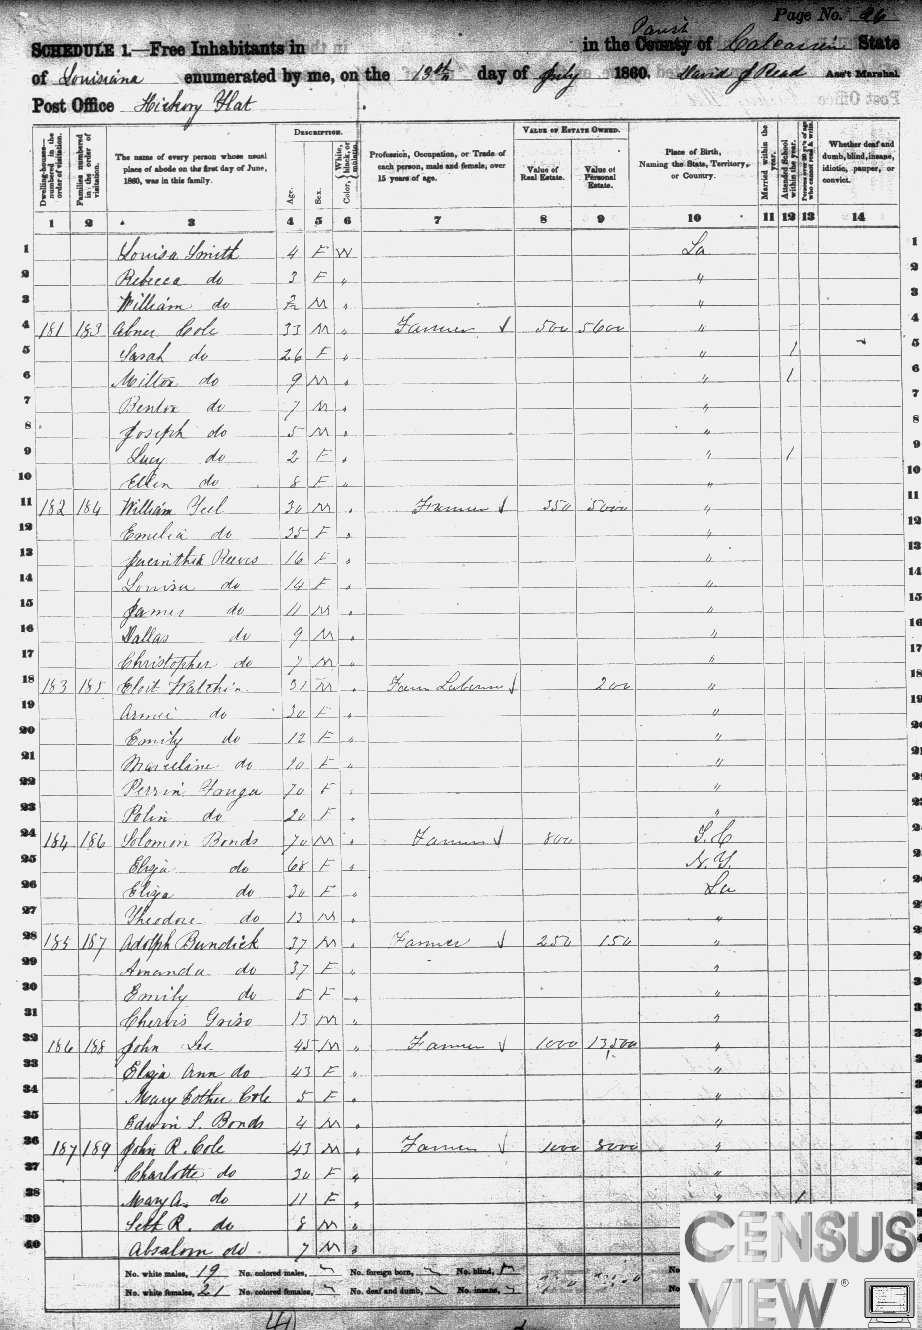 Page No. 26
SCHEDULE 1.—Free Inhabitants in in the County of Parish Calcasieu State
of Louisiana enumerated by me, on the 13th day of July 1860. David J Read Ass't Marshal.
Post Office Hickory Flat
Dwelling-houses—numbered in the order of visitation.
Families numbered in the order of visitation.
The name of every person whose usual place of abode on the first day of June, 1860, was in this family.
DESCRIPTION.
Age.
Sex.
Color, White, black, or mulatto.
Profession, Occupation, or Trade of each person, male and female, over 15 years of age.
VALUE OF ESTATE OWNED.
Value of Real Estate.
Value of Personal Estate.
Place of Birth, Naming the State, Territory, or Country.
Married within the year.
Attended School within the year.
Persons over 20 y'rs of age who cannot read & write.
Whether deaf and dumb, blind, insane, idiotic, pauper, or convict.
1 2 3 4 5 6 7 8 9 10 11 12 13 14
1 Louisa Smith 4 F W La 1
2 Rebecca do 3 F " " 2
3 William do M " " 3
4 181 183 Abner Cole 33 M " Farmer 500 5600 " 4
5 Sarah do 26 F " " 1 5
6 Milton do 9 M " " 1 6
7 Benton do 7 M " " 7
8 Joseph do 5 M " " 8
9 Lucy do 2 F " " 1 9
10 Ellen do 8 F " " 10
11 182 184 William Teel 30 M " Farmer 350 5000 " 11
12 Emelia do 35 F " " 12
13 Jacintha Reeves 16 F " " 13
14 Louisa do 14 F " " 14
15 James do 11 M " " 15
16 Dallas do 9 M " " 16
17 Christopher do 7 M " " 17
18 183 185 31 M " Farm Laborer 200 " 18
19 do 30 F " " 19
20 Emily do 12 F " "
21 Marceline do 10 F " "
22 Perrin 70 F " "
23 Polin do 20 F " "
24 184 186 Solomon Bonds 70 M " Farmer 800 S.C
25 Eliza do 68 F " N.Y.
26 Eliza do 30 F " La
27 Theodore do 13 M " "
28 185 187 Adolph Bundick 37 M " Farmer 250 150 "
29 Amanda do 37 F " "
30 Emily do 5 F " "
31 Griso 13 M " "
32 186 188 John Lee 45 M " Farmer 1000 13500 "
33 Eliza Ann do 43 F " "
34 Mary Esther Cole 5 F " "
35 Edwin S. Bonds 4 M " "
36 187 189 John R. Cole 43 M " Farmer 1000 8000 "
37 Charlotte do 30 F " "
38 Mary A. do 11 F " " 1
39 Seth R. do 8 M "
40 Absalom do 7 M "
No. white males, 19 No. colored males, No. foreign born, No. blind,
No. white females, 21 No. colored females, No. deaf and dumb, No. insane,
CENSUS
VIEW®